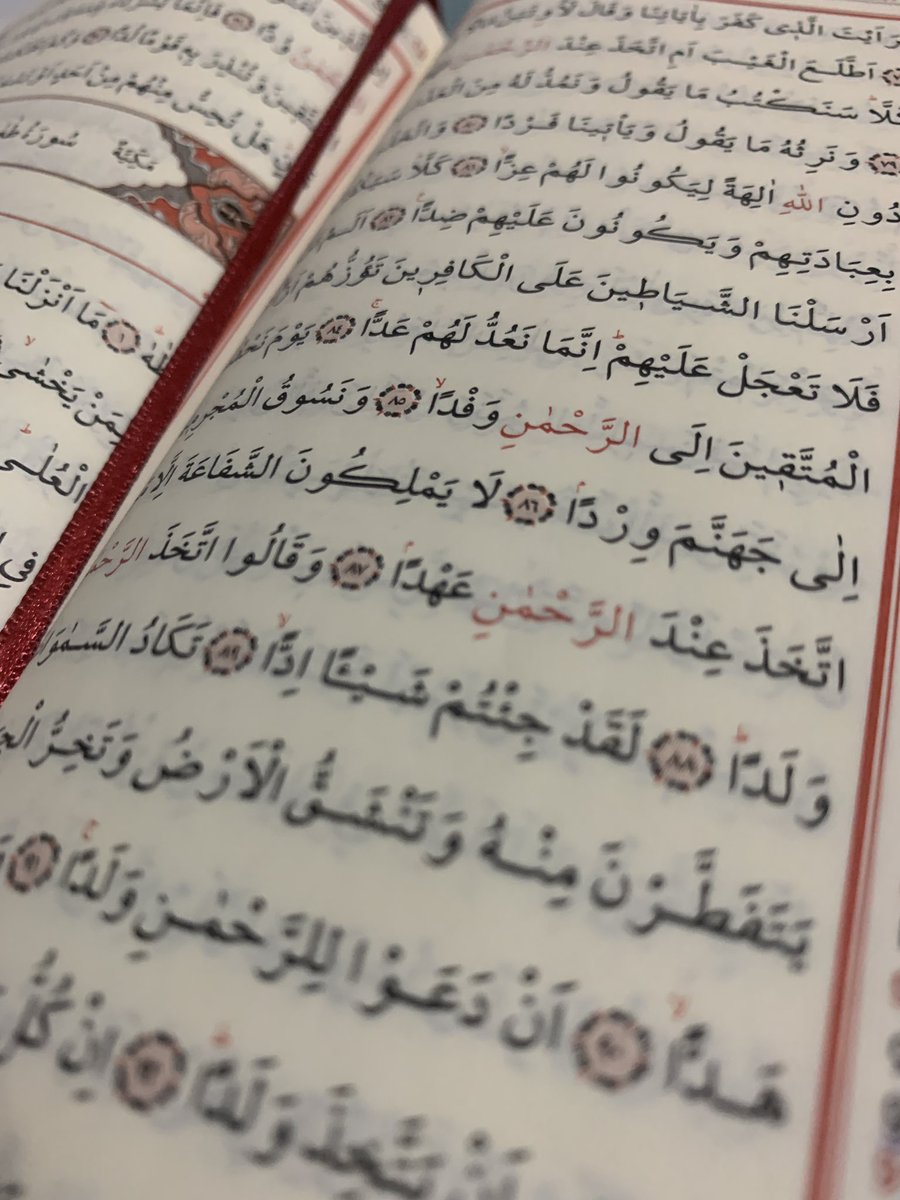 رَاَيْتَ الَّذ۪ي كَفَرَ بِاٰيَاتِنَا وَقَالَ
اَطَّلَعَ الْغَيْبَ اَمِ اتَّخَذَ عِنْدَ الرَّحْمٰنِ
كَلَّاۜ سَنَكْتُبُ مَا يَقُولُ وَنَمُدُّ لَهُ مِنَ الْعَذَ
﴿٧٩﴾ وَنَرِثُهُ مَا يَقُولُ وَيَأْت۪ينَا فَرْدًا ﴿٨٠﴾
دُونِ اللّٰهِ اٰلِهَةً لِيَكُونُوا لَهُمْ عِزًّاۙ ﴿٨١﴾ كَلَّاۜ
بِعِبَادَتِهِمْ وَيَكُونُونَ عَلَيْهِمْ ضِدًّا۟ ﴿٨٢﴾ اَلَمْ
اَرْسَلْنَا الشَّيَاط۪ينَ عَلَى الْكَافِر۪ينَ تَؤُزُّهُمْ
فَلَا تَعْجَلْ عَلَيْهِمْۜ اِنَّمَا نَعُدُّ لَهُمْ عَدًّاۚ ﴿٨٤﴾ يَوْمَ
الْمُتَّق۪ينَ اِلَى الرَّحْمٰنِ وَفْدًاۙ ﴿٨٥﴾ وَنَسُوقُ الْمُجْرِم
اِلٰى جَهَنَّمَ وِرْدًاۢ ﴿٨٦﴾ لَا يَمْلِكُونَ الشَّفَاعَةَ اِلَّا
اتَّخَذَ عِنْدَ الرَّحْمٰنِ عَهْدًاۢ ﴿٨٧﴾ وَقَالُوا اتَّخَذَ الرَّحْمٰ
وَلَدًاۜ ﴿٨٨﴾ لَقَدْ جِئْتُمْ شَيْـًٔا اِدًّاۙ ﴿٨٩﴾ تَكَادُ السَّمٰوَا
يَتَفَطَّرْنَ مِنْهُ وَتَنْشَقُّ الْاَرْضُ وَتَخِرُّ الْجِ
هَدًّاۙ ﴿٩٠﴾ اَنْ دَعَوْا لِلرَّحْمٰنِ وَلَدًاۚ ﴿٩١﴾
اَنْ يَتَّخِذَ وَلَدًاۜ ﴿٩٢﴾ اِنْ كُلُّ
فَاِنَّمَا
وَتُنْذِرَ بِه۪ قَوْمًا لُدًّا
هَلْ تُحِسُّ مِنْهُمْ مِنْ اَحَدٍ اَوْ
سُورَةُ طٰهٰ مَكِّيَّةٌ
طٰهٰۜ ﴿١﴾ مَٓا اَنْزَلْنَا
لِمَنْ يَخْشٰىۙ
الْعُلٰىۜ
فِي